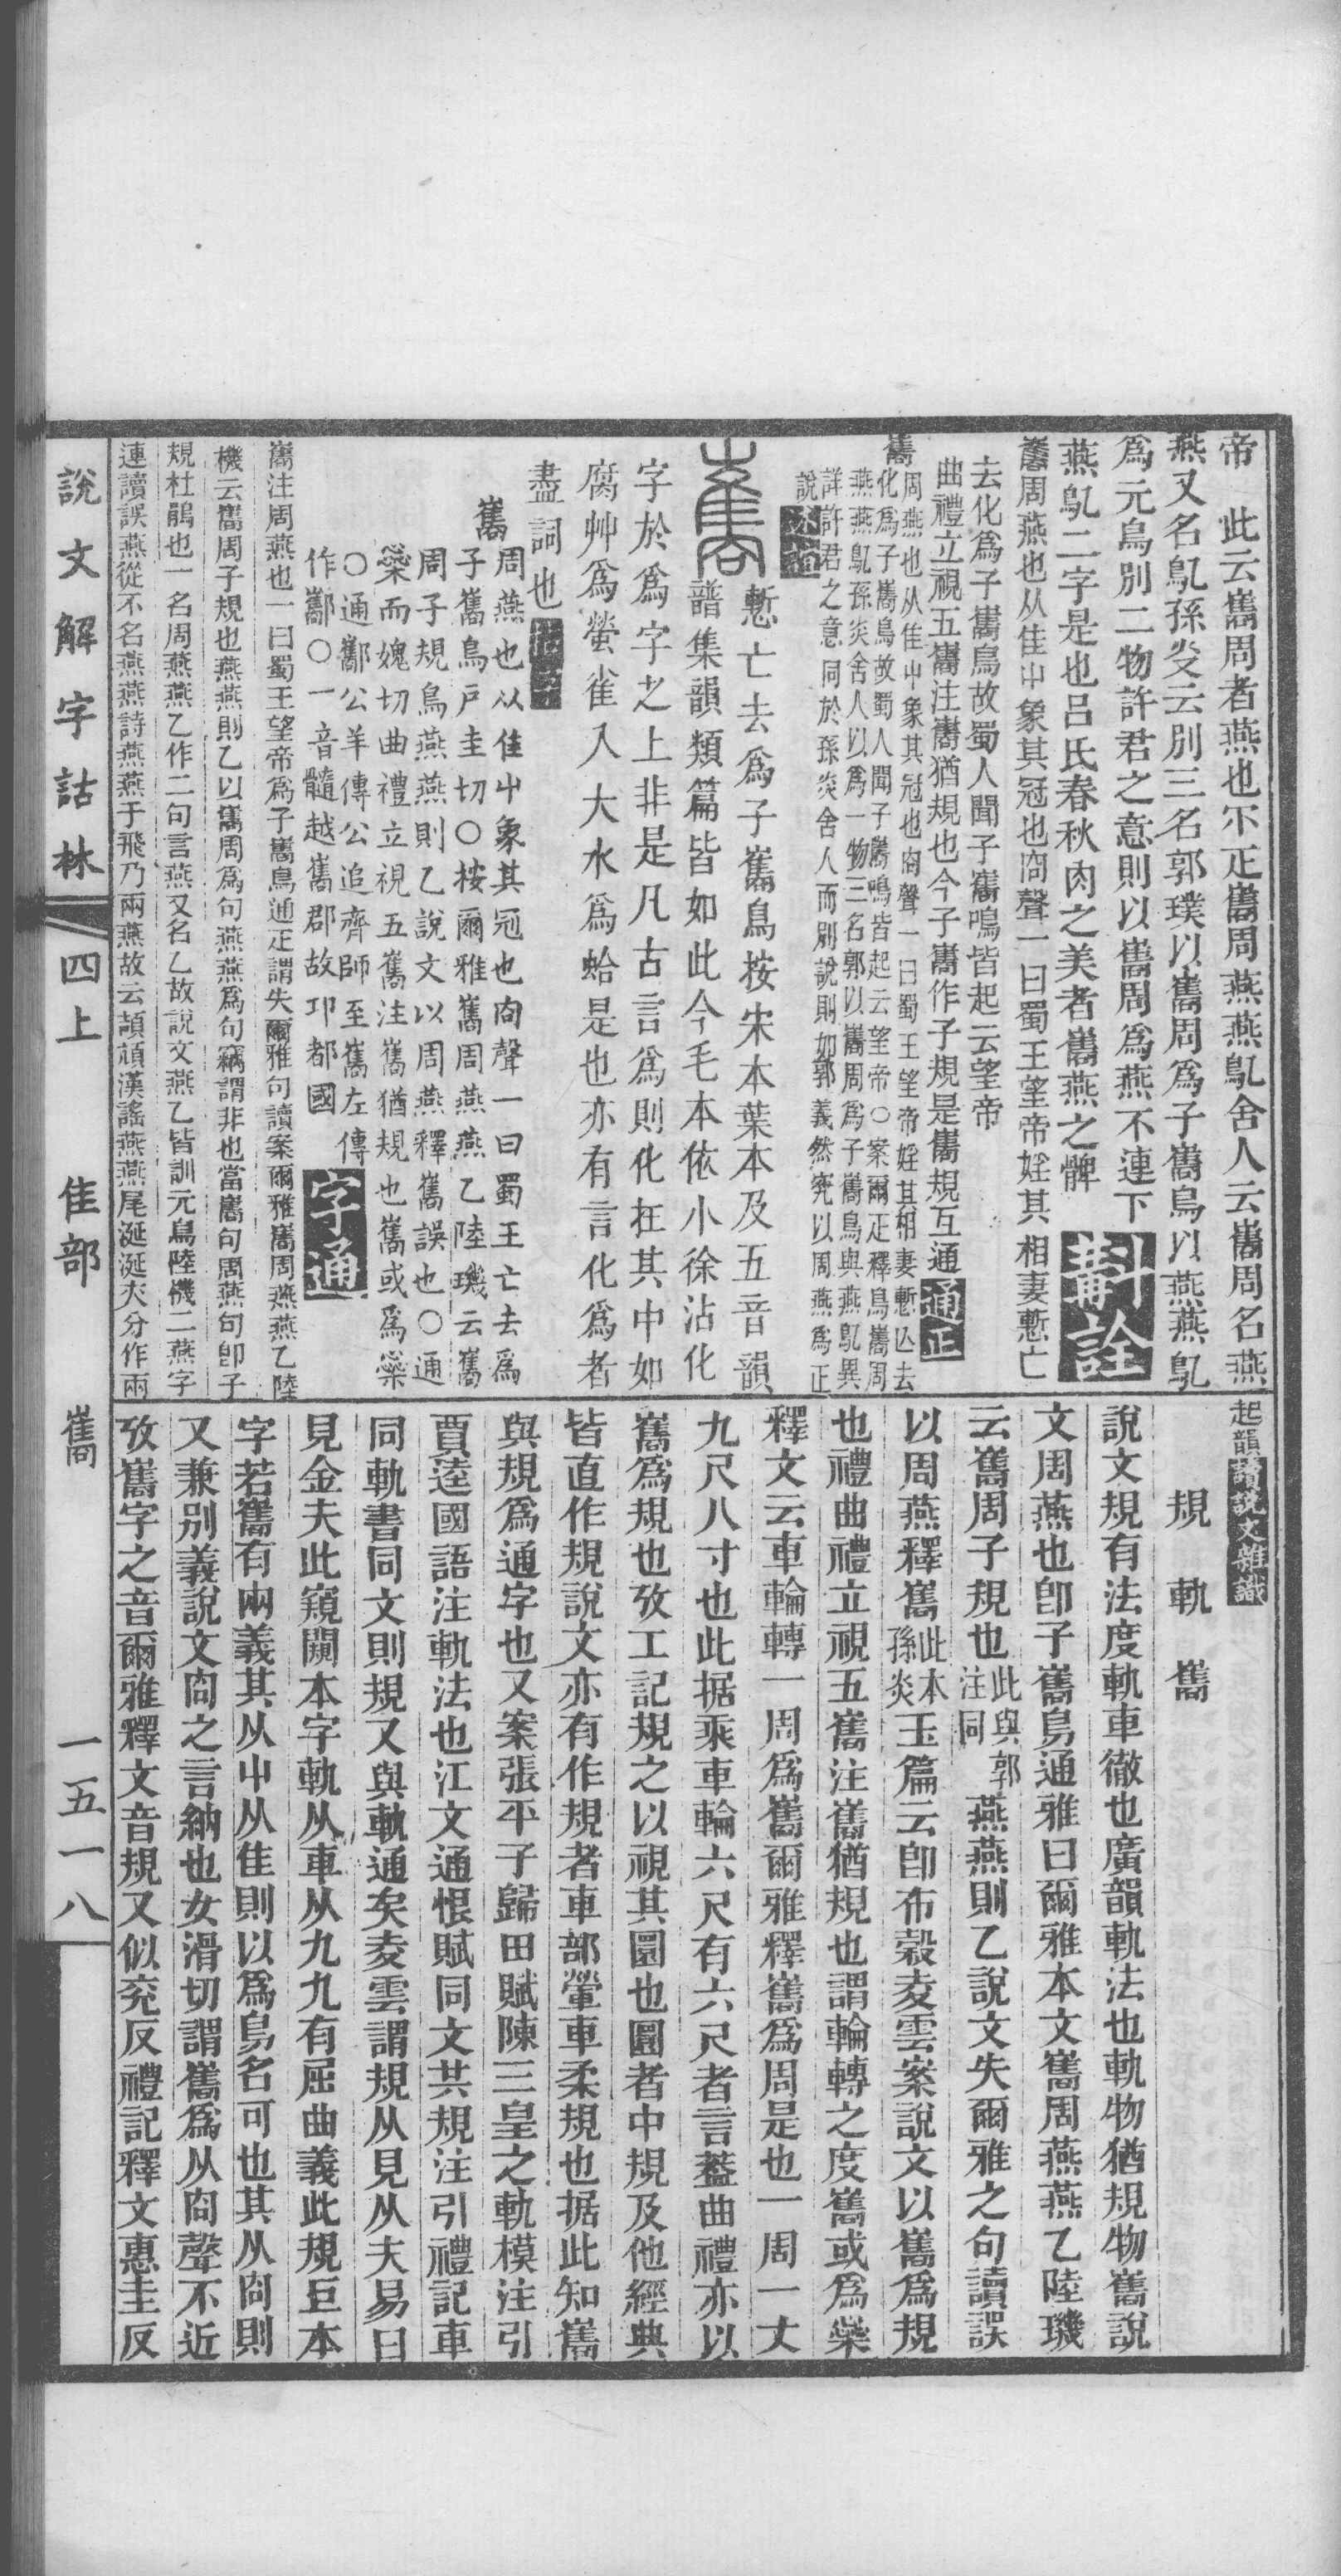 帝　此云巂周者燕也尔疋巂周燕燕鳦舍人云巂周名燕
燕又名鳦孫炎云別三名郭璞以巂周爲子巂鳥以燕燕鳦
爲元鳥別二物許君之意則以巂周爲燕不連下
燕鳦二字是也呂氏春秋肉之美者巂燕之髀
斠詮
巂周燕也从隹屮象其冠也㕯聲一曰蜀王望帝婬其相妻慙亡
去化爲子巂鳥故蜀人聞子巂鳴皆起云望帝
曲禮立視五巂注巂猶規也今子巂作子規是巂規互通
通正
巂周燕也从隹屮象其冠也㕯聲一曰蜀王望帝婬其相妻慙亾去
化爲子巂鳥故蜀人聞子巂鳴皆起云望帝○案爾疋釋鳥巂周
燕燕鳦孫炎舍人以爲一物三名郭以巂周爲子巂鳥與燕鳦異
詳許君之意同於孫炎舍人而別說則如郭義然究以周燕爲正
說
慙亡去爲子巂鳥按宋本葉本及五音韻
譜集韻類篇皆如此今毛本依小徐沾化
字於爲字之上非是凡古言爲則化在其中如
腐艸爲螢雀入大水爲蛤是也亦有言化爲者
盡詞也
巂周燕也从隹屮象其冠也㕯聲一曰蜀王亡去爲
子巂鳥戶圭切○桉爾雅巂周燕燕乙陸璣云巂
周子規鳥燕燕則乙說文以周燕釋巂誤也○通
䉛而媿切曲禮立視五巂注巂猶規也巂或爲䉛
○通酅公羊傳公追齊師至巂左傳
作酅○一音髓越巂郡故邛都國
字通
巂注周燕也一曰蜀王望帝爲子巂鳥通正謂失爾雅句讀案爾雅巂周燕燕乙陸
機云巂周子規也燕燕則乙以巂周爲句燕燕爲句竊謂非也當巂句周燕句卽子
規杜鵑也一名周燕燕乙作二句言燕又名乙故說文燕乙皆訓元鳥陸機二燕字
連讀誤燕從不名燕燕詩燕燕于飛乃兩燕故云頡頏漢謠燕燕尾涎涎夾分作兩
起韻
讀說文雜識
規　軌　巂
說文規有法度軌車徹也廣韻軌法也軌物猶規物巂說
文周燕也卽子巂鳥通雅曰爾雅本文巂周燕燕乙陸璣
云巂周子規也此與郭注同燕燕則乙說文失爾雅之句讀誤
以周燕釋巂此本孫炎玉篇云卽布穀夌雲案說文以巂爲規
也禮曲禮立視五巂注巂猶規也謂輪轉之度巂或爲䉛
釋文云車輪轉一周爲巂爾雅釋巂爲周是也一周一丈
九尺八寸也此据乘車輪六尺有六尺者言葢曲禮亦以
巂爲規也攷工記規之以視其圜也圜者中規及他經典
皆直作規說文亦有作規者車部輂車柔規也据此知巂
與規爲通字也又案張平子歸田賦陳三皇之軌模注引
賈逵國語注軌法也江文通恨賦同文共規注引禮記車
同軌書同文則規又與軌通矣夌雲謂規从見从夫易曰
見金夫此窺闚本字軌从車从九九有屈曲義此規巨本
字若巂有兩義其从屮从隹則以爲鳥名可也其从㕯則
又兼別義說文㕯之言納也女滑切謂巂爲从㕯聲不近
攷巂字之音爾雅釋文音規又似兖反禮記釋文惠圭反
說文解字詁林　四上　隹部　巂　一五一八